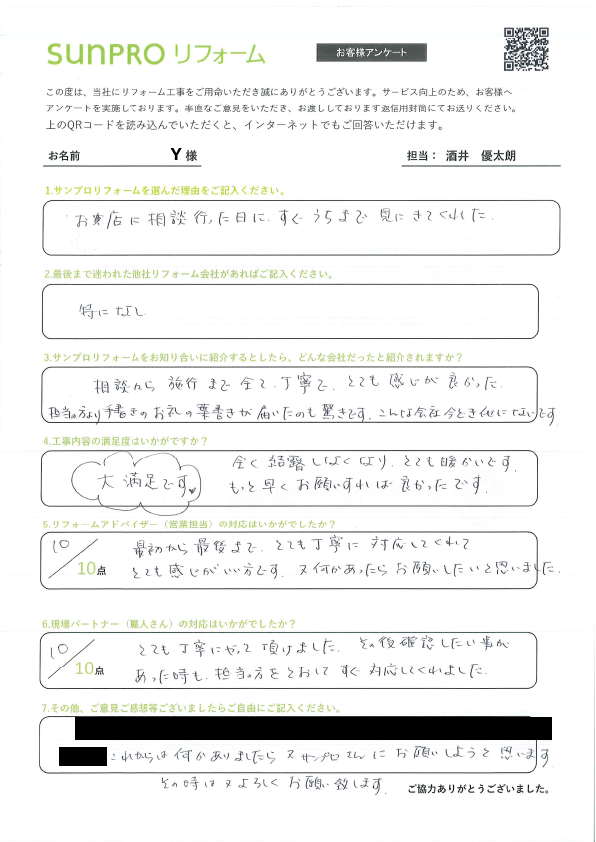 SUNPRO リフォーム
お客様アンケート
この度は、当社にリフォーム工事をご用命いただき誠にありがとうございます。サービス向上のため、お客様へ
アンケートを実施しております。率直なご意見をいただき、お渡ししております返信用封筒にてお送りください。
上のQRコードを読み込んでいただくと、インターネットでもご回答いただけます。
お名前 Y 様 担当： 酒井 優太朗
1.サンプロリフォームを選んだ理由をご記入ください。
お店に相談行った日に、すぐうちまで見にきてくれた。
2.最後まで迷われた他社リフォーム会社があればご記入ください。
特になし
3.サンプロリフォームをお知り合いに紹介するとしたら、どんな会社だったと紹介されますか？
相談から施行まで全て、丁寧で、とても感じが良かった。
担当の方より手書きのお礼の葉書きが届いたのも驚きです。こんな会社今どき他にないです
4.工事内容の満足度はいかがですか？
大満足です。
全く結露しなくなり、とても暖かいです。
もっと早くお願いすれば良かったです。
5.リフォームアドバイザー（営業担当）の対応はいかがでしたか？
10/10点
最初から最後まで、とても丁寧に対応してくれて
とても感じがいい方です。又何かあったらお願いしたいと思いました。
6.現場パートナー（職人さん）の対応はいかがでしたか？
10/10点
とても丁寧にやって頂けました。その後確認したい事が
あった時も、担当の方をとおしてすぐ対応してくれました。
7.その他、ご意見ご感想等ございましたらご自由にご記入ください。
これからは何かありましたら又サンプロさんにお願いしようと思います
その時は又よろしくお願い致します。
ご協力ありがとうございました。